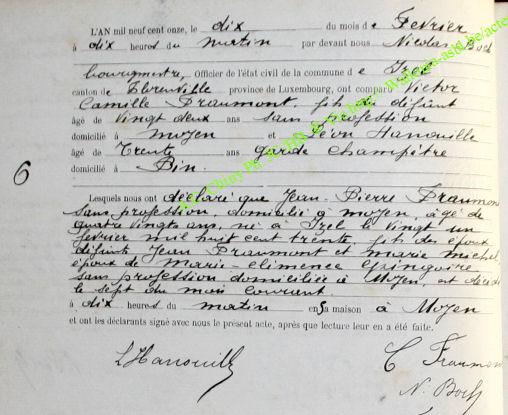 L'AN mil neuf cent onze, le dix du mois de Fevrier
à dix heures du matin par devant nous Nicolas Bock
bourgmestre, Officier de l'état civil de la commune de Izel
canton de Florenville province de Luxembourg, ont comparu Victor
Camille Fraumont, fils du défunt
âgé de Vingt deux ans sans profession
domicilié à moyen et Léon Hanouille
âgé de Trente ans garde champêtre
domicilié à Pin
6
Lesquels nous ont déclaré que Jean-Pierre Fraumon
sans profession, domicilié à moyen, âgé de
quatre vingts ans, né à Izel le vingt un
fevrier mil huit cent trente fils des époux
défunts Jean Fraumont et marie michel
époux de Marie-Climence Gringoire
sans profession domiciliée à Moyen, est décédé
le sept du mois courant
à dix heures du matin en sa maison à Moyen
et ont les déclarants signé avec nous le présent acte, après que lecture leur en a été faite.
L Hanouille
C Fraumon
N. Bock